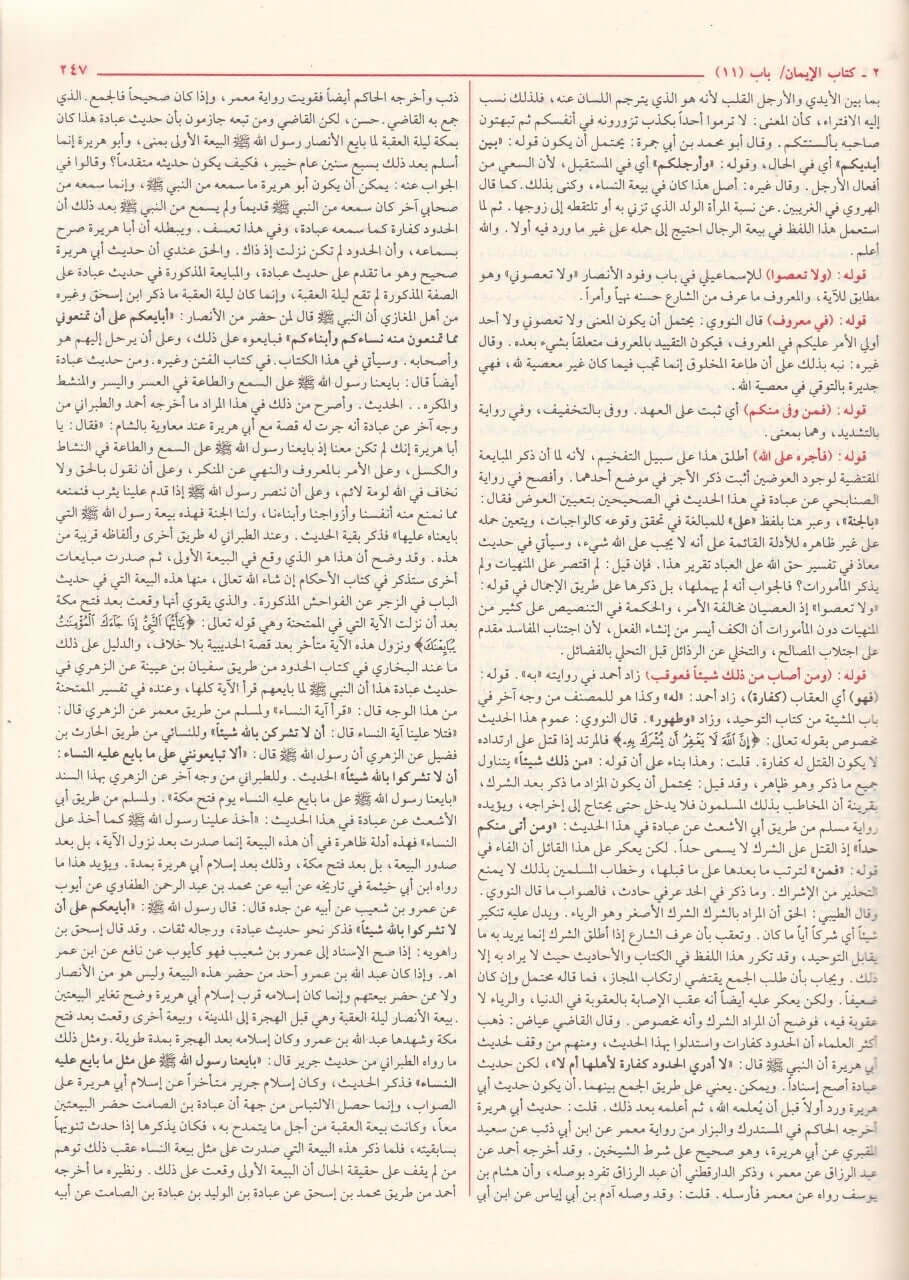 ٢ - كتاب الإيمان/ باب (١١)
٢٤٧
بما بين الأيدي والأرجل القلب لأنه هو الذي يترجم اللسان عنه، فلذلك نسب
إليه الافتراء، كأن المعنى: لا ترموا أحداً بكذب تزورونه في أنفسكم ثم تبهتون
صاحبه بألسنتكم. وقال أبو محمد بن أبي جمرة: يحتمل أن يكون قوله: «بين
أيديكم» أي في الحال، وقوله: «وأرجلكم» أي في المستقبل، لأن السعي من
أفعال الأرجل. وقال غيره: أصل هذا كان في بيعة النساء، وكنى بذلك. كما قال
الهروي في الغريبين. عن نسبة المرأة الولد الذي تزني به أو تلتقطه إلى زوجها. ثم لما
استعمل هذا اللفظ في بيعة الرجال احتيج إلى حمله على غير ما ورد فيه أولا. والله
أعلم.
قوله: (ولا تعصوا) للإسماعيلي في باب وفود الأنصار «ولا تعصوني» وهو
مطابق للآية، والمعروف ما عرف من الشارع حسنه نهياً وأمراً.
قوله: (في معروف) قال النووي: يحتمل أن يكون المعنى ولا تعصوني ولا أحد
أولي الأمر عليكم في المعروف، فيكون التقييد بالمعروف متعلقاً بشيء بعده. وقال
غيره: نبه بذلك على أن طاعة المخلوق إنما تجب فيما كان غير معصية لله، فهي
جديرة بالتوقي في معصية الله.
قوله: (فمن وفى منكم) أي ثبت على العهد. ووفى بالتخفيف، وفي رواية
بالتشديد، وهما بمعنى.
قوله: (فأجره على الله) أطلق هذا على سبيل التفخيم، لأنه لما أن ذكر المبايعة
المقتضية لوجود العوضين أثبت ذكر الأجر في موضع أحدهما. وأفصح في رواية
الصنابحي عن عبادة في هذا الحديث في الصحيحين بتعيين العوض فقال:
«بالجنة»، وعبر هنا بلفظ «على» للمبالغة في تحقق وقوعه كالواجبات، ويتعين حمله
على غير ظاهره للأدلة القائمة على أنه لا يجب على الله شيء، وسيأتي في حديث
معاذ في تفسير حق الله على العباد تقرير هذا. فإن قيل: لم اقتصر على المنهيات ولم
يذكر المأمورات؟ فالجواب أنه لم يهملها، بل ذكرها على طريق الإجمال في قوله:
«ولا تعصوا» إذ العصيان مخالفة الأمر، والحكمة في التنصيص على كثير من
المنهيات دون المأمورات أن الكف أيسر من إنشاء الفعل، لأن اجتناب المفاسد مقدم
على اجتلاب المصالح، والتخلي عن الرذائل قبل التحلي بالفضائل.
قوله: (ومن أصاب من ذلك شيئاً فعوقب) زاد أحمد في روايته «به». قوله:
(فهو) أي العقاب (كفارة)، زاد أحمد: «له» وكذا هو للمصنف من وجه آخر في
باب المشيئة من كتاب التوحيد، وزاد «وطهور». قال النووي: عموم هذا الحديث
مخصوص بقوله تعالى: ﴿إِنَّ ٱللَّهَ لَا يَغْفِرُ أَن يُشْرَكَ بِهِۦ﴾ فالمرتد إذا قتل على ارتداده
لا يكون القتل له كفارة. قلت: وهذا بناء على أن قوله: «من ذلك شيئاً» يتناول
جميع ما ذكر وهو ظاهر، وقد قيل: يحتمل أن يكون المراد ما ذكر بعد الشرك،
بقرينة أن المخاطب بذلك المسلمون فلا يدخل حتى يحتاج إلى إخراجه، ويؤيده
رواية مسلم من طريق أبي الأشعث عن عبادة في هذا الحديث: «ومن أتى منكم
حداً» إذ القتل على الشرك لا يسمى حداً. لكن يعكر على هذا القائل أن الفاء في
قوله: «فمن» لترتب ما بعدها على ما قبلها، وخطاب المسلمين بذلك لا يمنع
التحذير من الإشراك. وما ذكر في الحد عرفي حادث، فالصواب ما قال النووي.
وقال الطيبي: الحق أن المراد بالشرك الشرك الأصغر وهو الرياء. ويدل عليه تنكير
شيئاً أي شركاً أياً ما كان. وتعقب بأن عرف الشارع إذا أطلق الشرك إنما يريد به ما
يقابل التوحيد، وقد تكرر هذا اللفظ في الكتاب والأحاديث حيث لا يراد به إلا
ذلك. ويجاب بأن طلب الجمع يقتضي ارتكاب المجاز، فما قاله محتمل وإن كان
ضعيفاً. ولكن يعكر عليه أيضاً أنه عقب الإصابة بالعقوبة في الدنيا، والرياء لا
عقوبة فيه، فوضح أن المراد الشرك وأنه مخصوص. وقال القاضي عياض: ذهب
أكثر العلماء أن الحدود كفارات واستدلوا بهذا الحديث، ومنهم من وقف لحديث
أبي هريرة أن النبي ﷺ قال: «لا أدري الحدود كفارة لأهلها أم لا»، لكن حديث
عبادة أصح إسناداً. ويمكن. يعني على طريق الجمع بينهما. أن يكون حديث أبي
هريرة ورد أولاً قبل أن يُعلمه الله، ثم أعلمه بعد ذلك. قلت: حديث أبي هريرة
أخرجه الحاكم في المستدرك والبزار من رواية معمر عن ابن أبي ذئب عن سعيد
المقبري عن أبي هريرة، وهو صحيح على شرط الشيخين. وقد أخرجه أحمد عن
عبد الرزاق عن معمر، وذكر الدارقطني أن عبد الرزاق تفرد بوصله، وأن هشام بن
يوسف رواه عن معمر فأرسله. قلت: وقد وصله آدم بن أبي إياس عن ابن أبي
ذئب وأخرجه الحاكم أيضاً فقويت رواية معمر، وإذا كان صحيحاً فالجمع. الذي
جمع به القاضي. حسن، لكن القاضي ومن تبعه جازمون بأن حديث عبادة هذا كان
بمكة ليلة العقبة لما بايع الأنصار رسول الله ﷺ البيعة الأولى بمنى، وأبو هريرة إنما
أسلم بعد ذلك بسبع سنين عام خيبر، فكيف يكون حديثه متقدماً؟ وقالوا في
الجواب عنه: يمكن أن يكون أبو هريرة ما سمعه من النبي ﷺ، وإنما سمعه من
صحابي آخر كان سمعه من النبي ﷺ قديماً ولم يسمع من النبي ﷺ بعد ذلك أن
الحدود كفارة كما سمعه عبادة، وفي هذا تعسف. ويبطله أن أبا هريرة صرح
بسماعه، وأن الحدود لم تكن نزلت إذ ذاك. والحق عندي أن حديث أبي هريرة
صحيح وهو ما تقدم على حديث عبادة، والمبايعة المذكورة في حديث عبادة على
الصفة المذكورة لم تقع ليلة العقبة، وإنما كان ليلة العقبة ما ذكر ابن إسحق وغيره
من أهل المغازي أن النبي ﷺ قال لمن حضر من الأنصار: «أبايعكم على أن تمنعوني
مما تمنعون منه نساءكم وأبناءكم» فبايعوه على ذلك، وعلى أن يرحل إليهم هو
وأصحابه. وسيأتي في هذا الكتاب. في كتاب الفتن وغيره. ومن حديث عبادة
أيضاً قال: بايعنا رسول الله ﷺ على السمع والطاعة في العسر واليسر والمنشط
والمكره.. الحديث. وأصرح من ذلك في هذا المراد ما أخرجه أحمد والطبراني من
وجه آخر عن عبادة أنه جرت له قصة مع أبي هريرة عند معاوية بالشام: «فقال: يا
أبا هريرة إنك لم تكن معنا إذ بايعنا رسول الله ﷺ على السمع والطاعة في النشاط
والكسل، وعلى الأمر بالمعروف والنهي عن المنكر، وعلى أن نقول بالحق ولا
نخاف في الله لومة لائم، وعلى أن ننصر رسول الله ﷺ إذا قدم علينا يثرب فنمنعه
مما نمنع منه أنفسنا وأزواجنا وأبناءنا، ولنا الجنة فهذه بيعة رسول الله ﷺ التي
بايعناه عليها» فذكر بقية الحديث. وعند الطبراني له طريق أخرى وألفاظه قريبة من
هذه. وقد وضح أن هذا هو الذي وقع في البيعة الأولى، ثم صدرت مبايعات
أخرى ستذكر في كتاب الأحكام إن شاء الله تعالى، منها هذه البيعة التي في حديث
الباب في الزجر عن الفواحش المذكورة. والذي يقوي أنها وقعت بعد فتح مكة
بعد أن نزلت الآية التي في الممتحنة وهي قوله تعالى: ﴿يَٰٓأَيُّهَا ٱلنَّبِىُّ إِذَا جَآءَكَ ٱلْمُؤْمِنَٰتُ
يُبَايِعْنَكَ﴾ ونزول هذه الآية متأخر بعد قصة الحديبية بلا خلاف، والدليل على ذلك
ما عند البخاري في كتاب الحدود من طريق سفيان بن عيينة عن الزهري في
حديث عبادة هذا أن النبي ﷺ لما بايعهم قرأ الآية كلها، وعنده في تفسير الممتحنة
من هذا الوجه قال: «قرأ آية النساء» ولمسلم من طريق معمر عن الزهري قال:
«فتلا علينا آية النساء قال: أن لا تشركن بالله شيئاً» وللنسائي من طريق الحارث بن
فضيل عن الزهري أن رسول الله ﷺ قال: «ألا تبايعونني على ما بايع عليه النساء:
أن لا تشركوا بالله شيئاً» الحديث. وللطبراني من وجه آخر عن الزهري بهذا السند
«بايعنا رسول الله ﷺ على ما بايع عليه النساء يوم فتح مكة». ولمسلم من طريق أبي
الأشعث عن عبادة في هذا الحديث: «أخذ علينا رسول الله ﷺ كما أخذ على
النساء» فهذه أدلة ظاهرة في أن هذه البيعة إنما صدرت بعد نزول الآية، بل بعد
صدور البيعة، بل بعد فتح مكة، وذلك بعد إسلام أبي هريرة بمدة. ويؤيد هذا ما
رواه ابن أبي خيثمة في تاريخه عن أبيه عن محمد بن عبد الرحمن الطفاوي عن أيوب
عن عمرو بن شعيب عن أبيه عن جده قال: قال رسول الله ﷺ: «أبايعكم على أن
لا تشركوا بالله شيئاً» فذكر نحو حديث عبادة، ورجاله ثقات. وقد قال إسحق بن
راهويه: إذا صح الإسناد إلى عمرو بن شعيب فهو كأيوب عن نافع عن ابن عمر
اهـ. وإذا كان عبد الله بن عمرو أحد من حضر هذه البيعة وليس هو من الأنصار
ولا ممن حضر بيعتهم وإنما كان إسلامه قرب إسلام أبي هريرة وضح تغاير البيعتين
.بيعة الأنصار ليلة العقبة وهي قبل الهجرة إلى المدينة، وبيعة أخرى وقعت بعد فتح
مكة وشهدها عبد الله بن عمرو وكان إسلامه بعد الهجرة بمدة طويلة. ومثل ذلك
ما رواه الطبراني من حديث جرير قال: «بايعنا رسول الله ﷺ على مثل ما بايع عليه
النساء» فذكر الحديث، وكان إسلام جرير متأخراً عن إسلام أبي هريرة على
الصواب، وإنما حصل الالتباس من جهة أن عبادة بن الصامت حضر البيعتين
معاً، وكانت بيعة العقبة من أجل ما يتمدح به، فكان يذكرها إذا حدث تنويهاً
بسابقيته، فلما ذكر هذه البيعة التي صدرت على مثل بيعة النساء عقب ذلك توهم
من لم يقف على حقيقة الحال أن البيعة الأولى وقعت على ذلك. ونظيره ما أخرجه
أحمد من طريق محمد بن إسحق عن عبادة بن الوليد بن عبادة بن الصامت عن أبيه